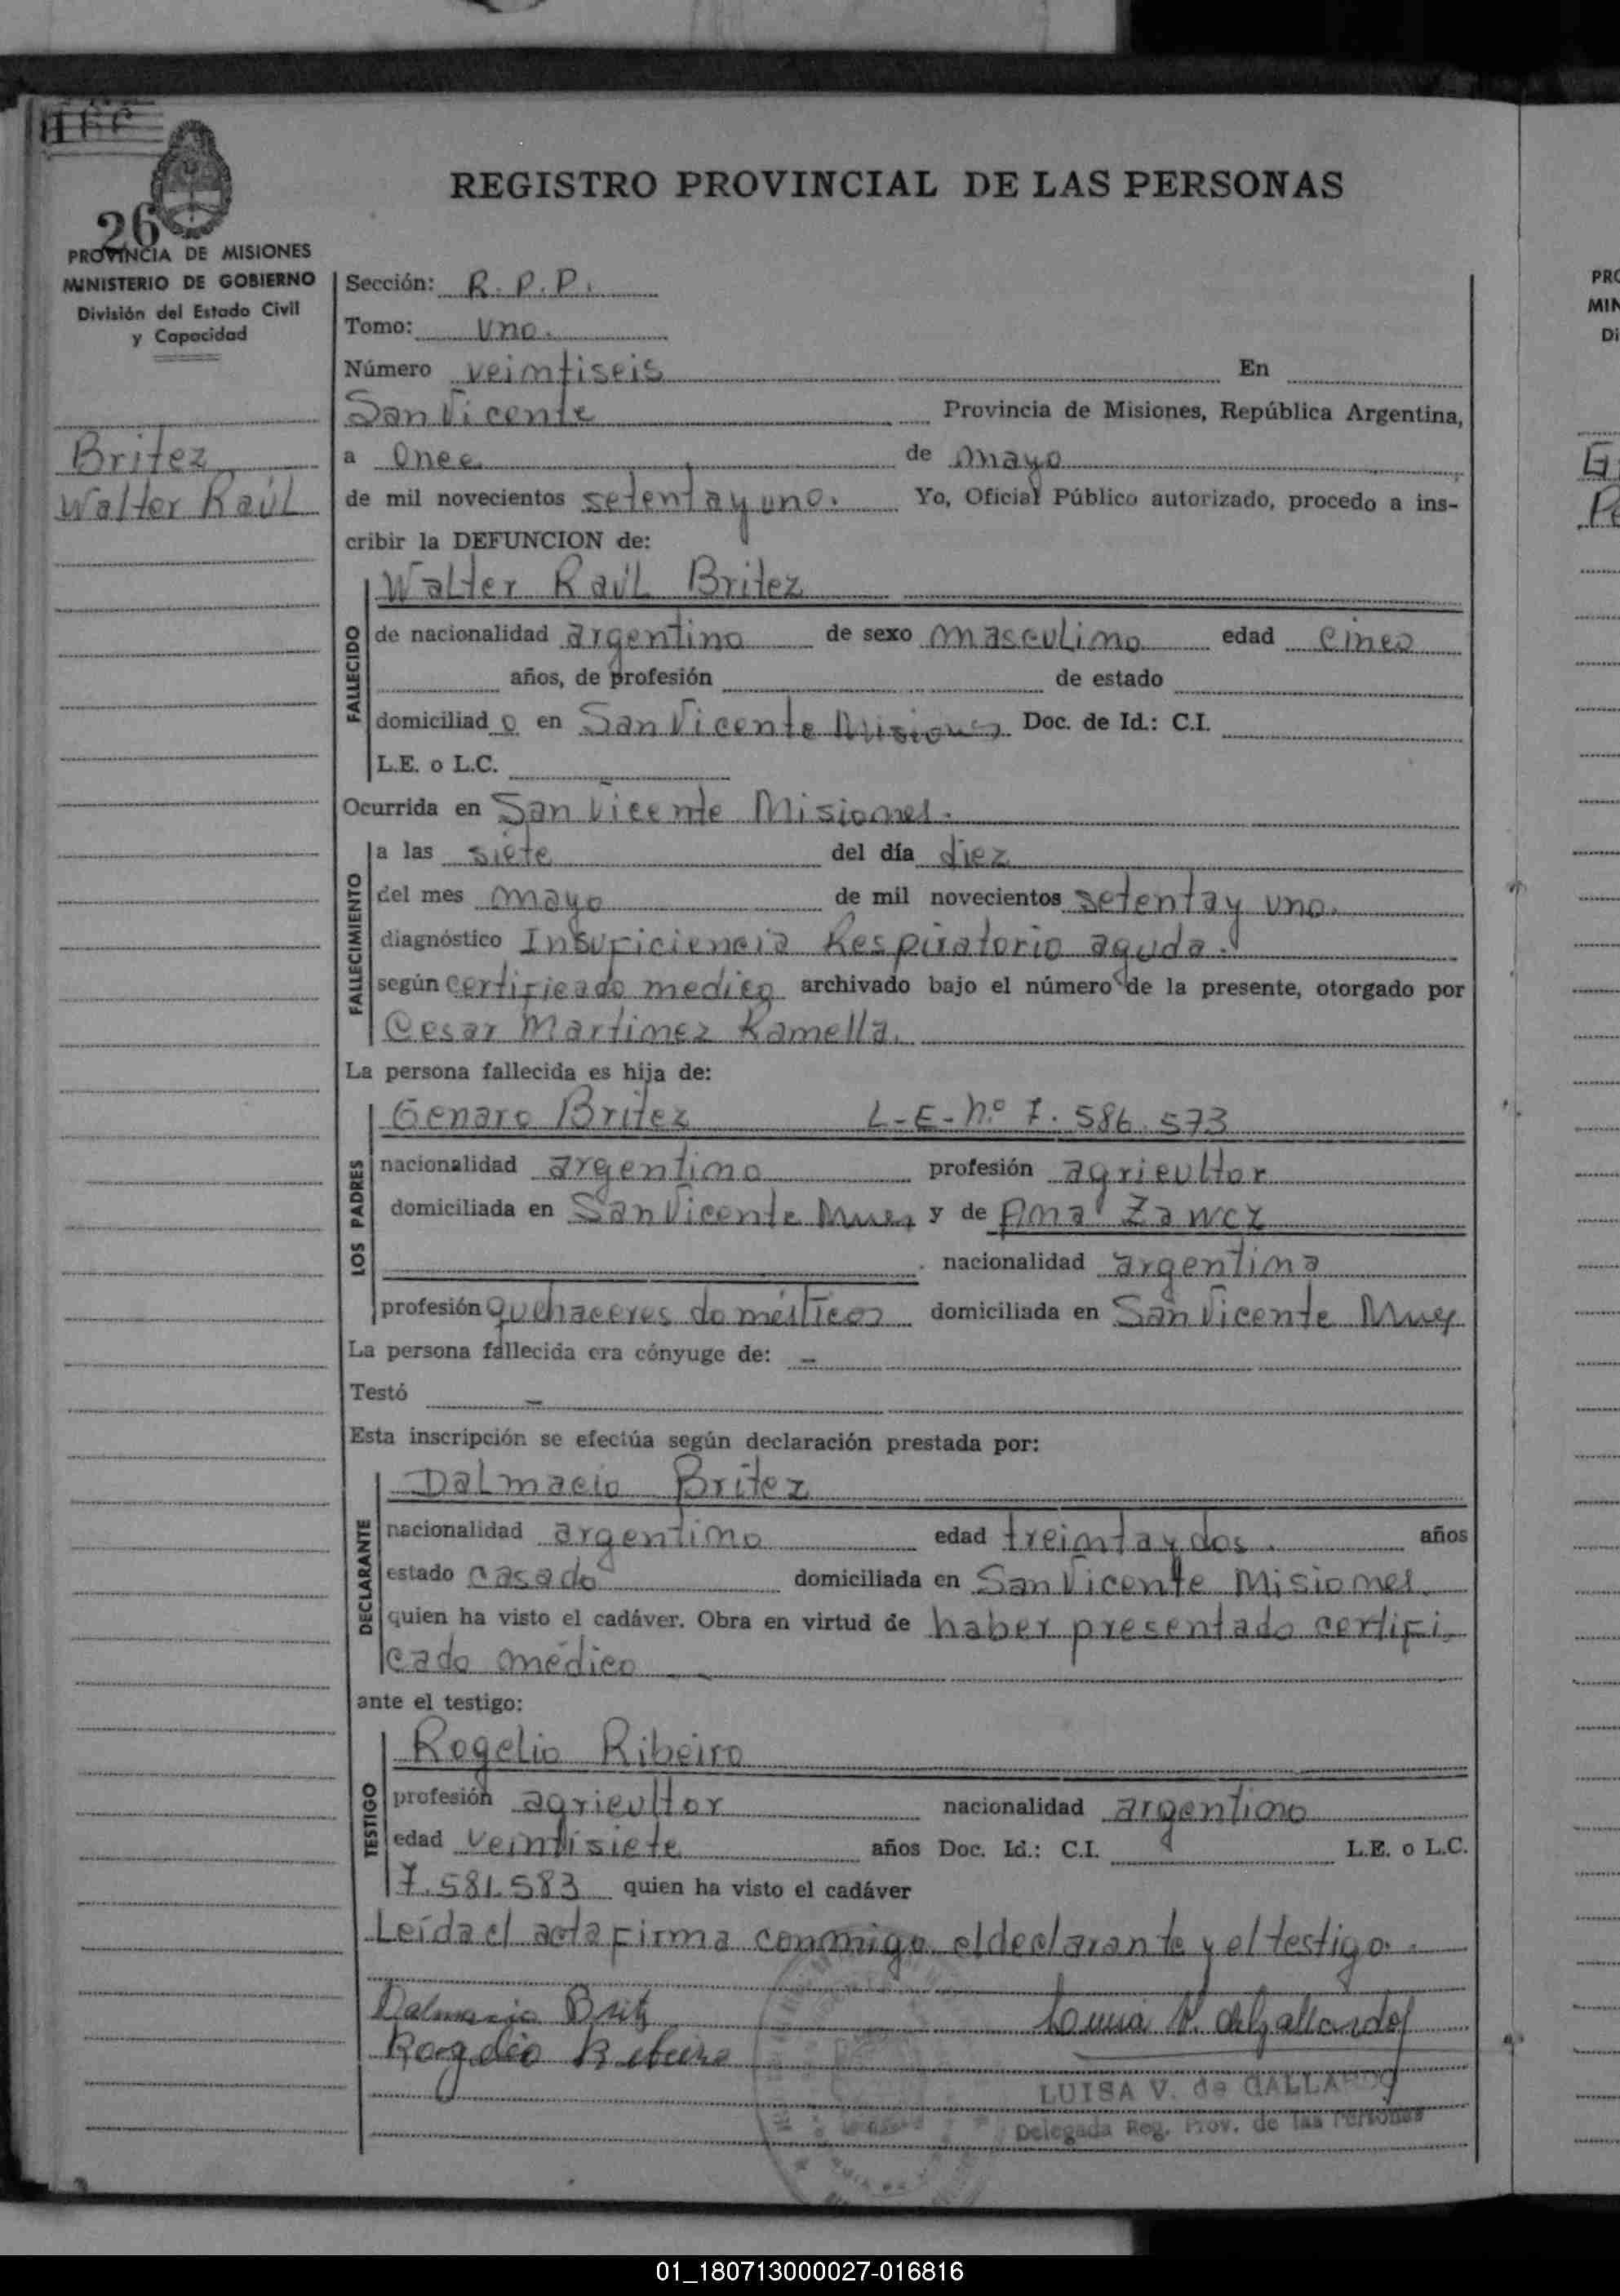 26
PROVINCIA DE MISIONES
MINISTERIO DE GOBIERNO
División del Estado Civil
y Capacidad
Britez
Walter Raúl
REGISTRO PROVINCIAL DE LAS PERSONAS
Sección: R.P.P.
Tomo: uno.
Número veintiseis En
San Vicente Provincia de Misiones, República Argentina,
a Once de mayo
de mil novecientos setenta y uno. Yo, Oficial Público autorizado, procedo a ins-
cribir la DEFUNCION de:
FALLECIDO
Walter Raúl Britez
de nacionalidad argentino de sexo masculino edad cinco
años, de profesión de estado
domiciliado en San Vicente Misiones Doc. de Id.: C.I.
L.E. o L.C.
Ocurrida en San Vicente Misiones.
FALLECIMIENTO
a las siete del día diez
del mes mayo de mil novecientos setenta y uno.
diagnóstico Insuficiencia Respiratorio aguda.
según certificado medico archivado bajo el número de la presente, otorgado por
Cesar Martinez Ramella.
La persona fallecida es hija de:
LOS PADRES
Genaro Britez L-E-nº 7.586.573
nacionalidad argentino profesión agricultor
domiciliada en San Vicente Mnes y de Ana Zawcz
nacionalidad argentina
profesión quehaceres domésticos domiciliada en San Vicente Mnes
La persona fallecida era cónyuge de: -
Testó -
Esta inscripción se efectúa según declaración prestada por:
DECLARANTE
Dalmacio Britez
nacionalidad argentino edad treinta y dos. años
estado casado domiciliada en San Vicente Misiones.
quien ha visto el cadáver. Obra en virtud de haber presentado certifi-
cado médico
ante el testigo:
TESTIGO
Rogelio Ribeiro
profesión agricultor nacionalidad argentino
edad veintisiete años Doc. Id.: C.I. L.E. o L.C.
7.581.583 quien ha visto el cadáver
Leída el acta firma conmigo el declarante y el testigo.
Dalmacio Britz
Luisa V. de Gallardo
Rogelio Ribeiro
LUISA V. de GALLARDO
Delegada Reg. Prov. de las Personas
PRO
MIN
Di
01_180713000027-016816